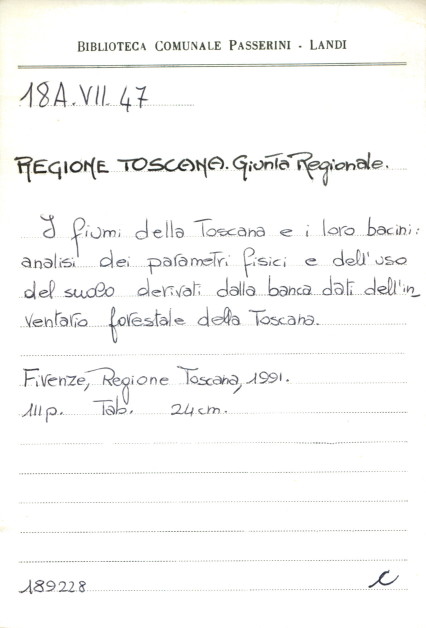 BIBLIOTECA COMUNALE PASSERINI - LANDI
18A.VII.47
REGIONE TOSCANA. Giunta Regionale.
I fiumi della Toscana e i loro bacini:
analisi dei parametri fisici e dell'uso
del suolo derivati dalla banca dati dell'in
ventario forestale della Toscana.
Firenze, Regione Toscana, 1991.
111p. Tab. 24cm.
189228 C